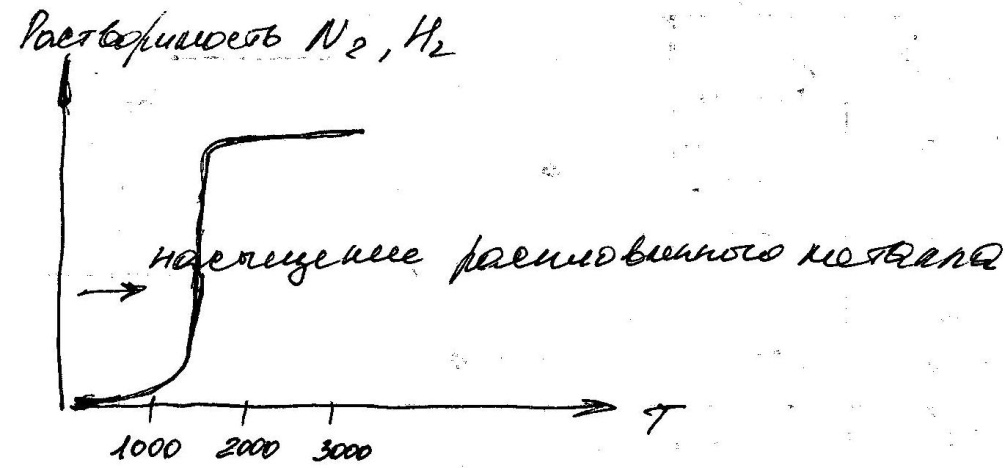 Растворимость N₂, H₂
насыщение расплавленного металла
T
1000 2000 3000